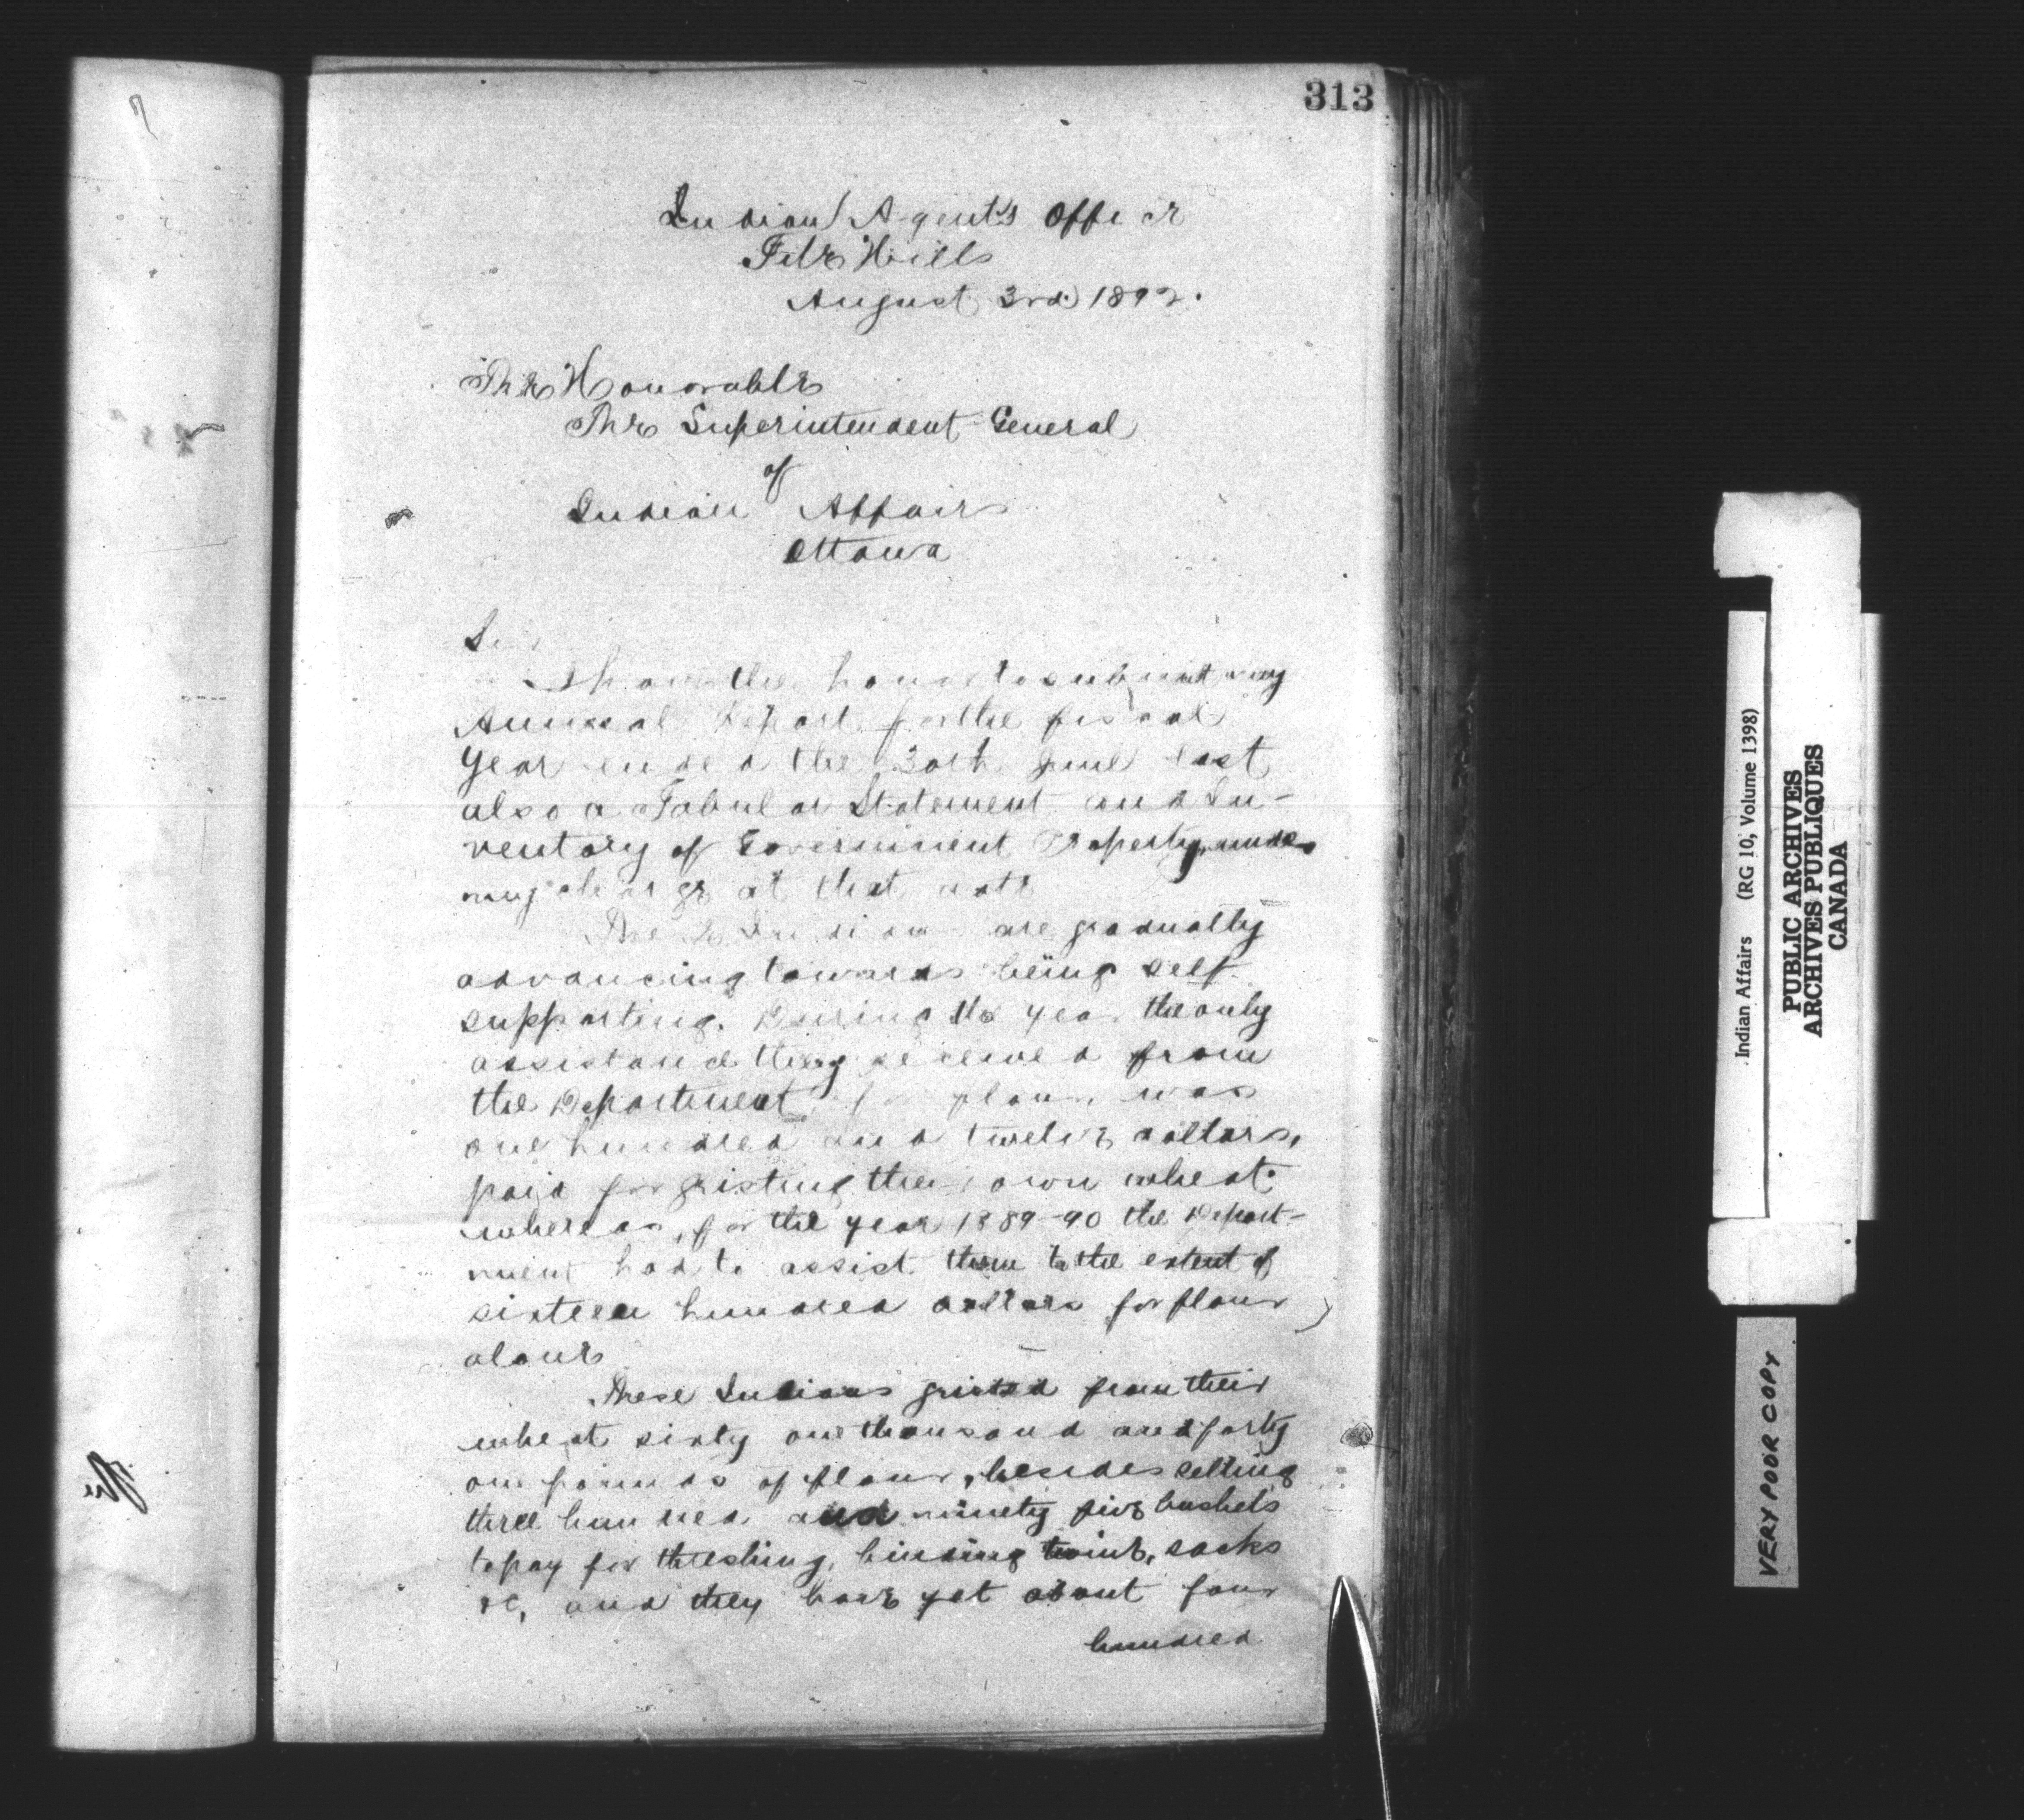 313
Indian Agent's Office
File Hills
August 3rd 1892.
The Honorable
The Superintendent General
of
Indian Affairs
Ottawa
Sir
I have the honor to submit my
Annual Report for the fiscal
Year ended the 30th June last
also a Tabular Statement and In-
ventory of Government Property, under
my charge at that date
These Indians are gradually
advancing towards being self
supporting. During the year the only
assistance they received from
the Department for flour, was
one hundred and twelve dollars,
paid for gristing their own wheat
whereas, for the year 1889-90 the Depart-
ment had to assist them to the extent of
sixteen hundred dollars for flour
alone
These Indians gristed from their
wheat sixty one thousand and forty
one pounds of flour, besides selling
three hundred and ninety five bushels
to pay for threshing, binding twine, sacks
&c, and they have yet about four
hundred
Indian Affairs (RG 10, Volume 1398)
PUBLIC ARCHIVES
ARCHIVES PUBLIQUES
CANADA
VERY POOR COPY